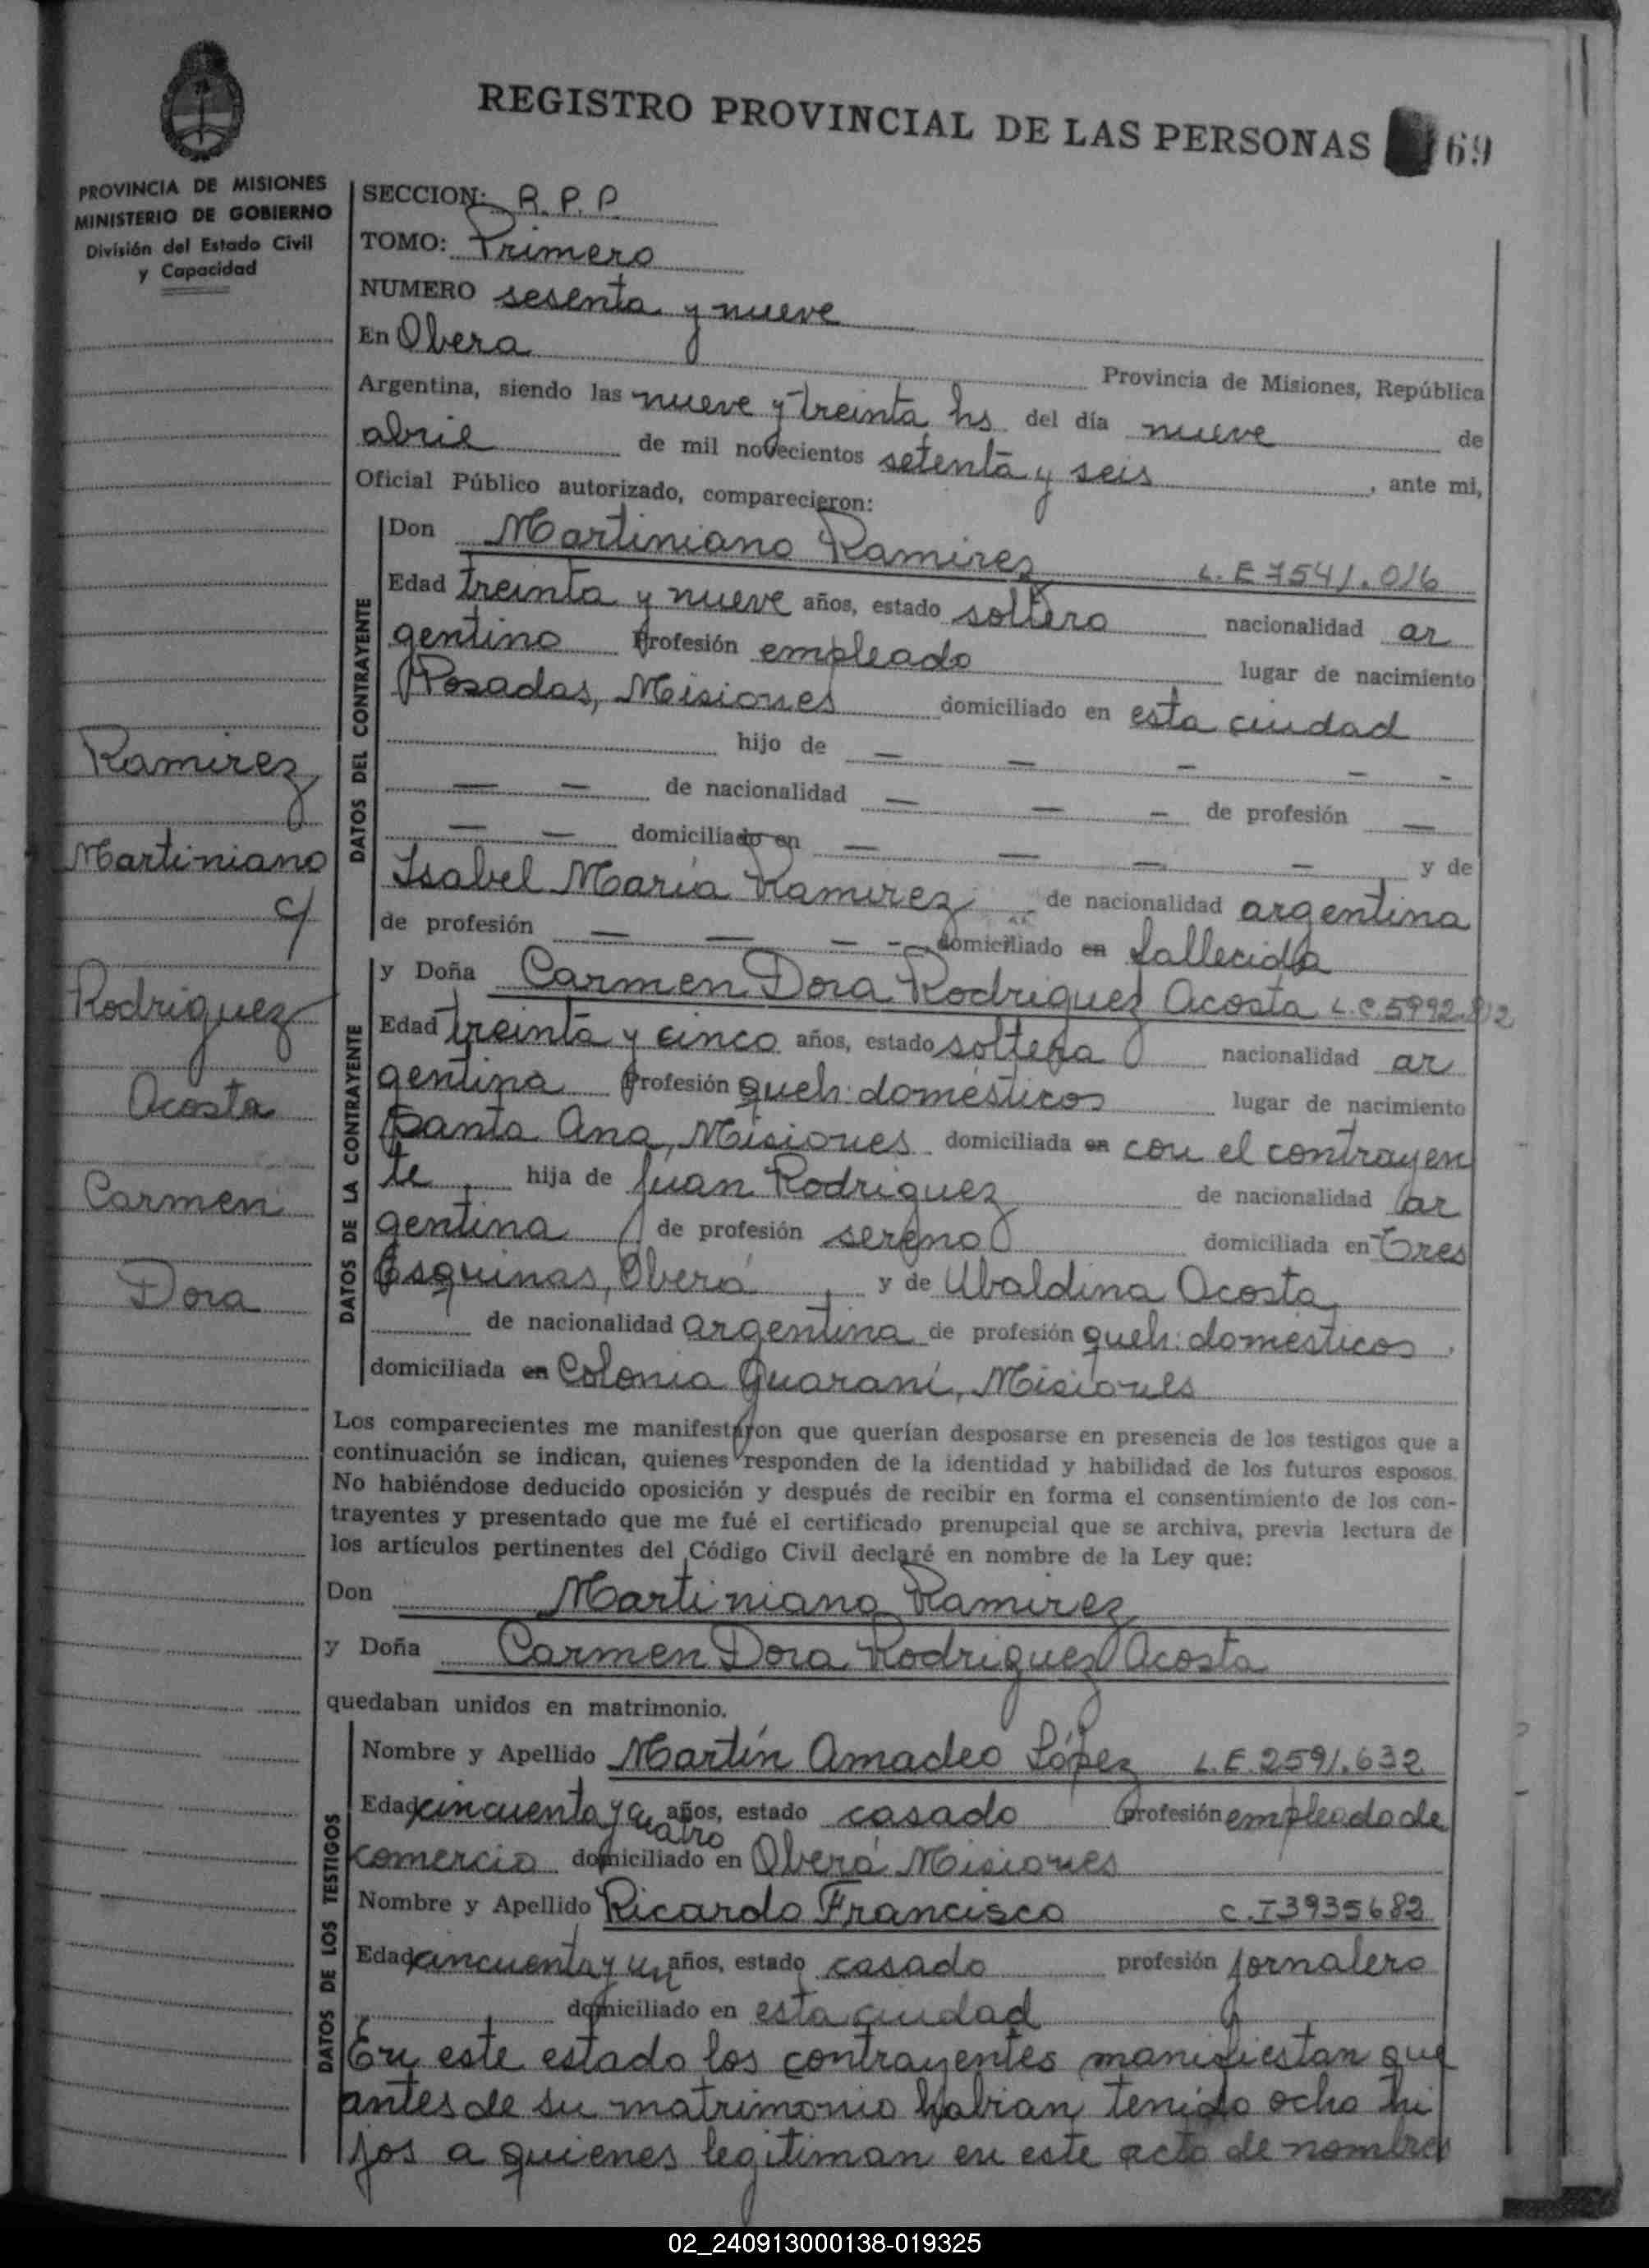 REGISTRO PROVINCIAL DE LAS PERSONAS 69
PROVINCIA DE MISIONES
MINISTERIO DE GOBIERNO
División del Estado Civil
y Capacidad
Ramirez
Martiniano
c/
Rodriguez
Acosta
Carmen
Dora
SECCION: R. P. P.
TOMO: Primero
NUMERO sesenta y nueve
En Obera
Provincia de Misiones, República
Argentina, siendo las nueve y treinta hs del día nueve de
abril de mil novecientos setenta y seis, ante mi,
Oficial Público autorizado, comparecieron:
DATOS DEL CONTRAYENTE
Don Martiniano Ramirez L. E 7541.016
Edad treinta y nueve años, estado soltero nacionalidad ar
gentino Profesión empleado lugar de nacimiento
Posadas, Misiones domiciliado en esta ciudad
hijo de — — — — —
— — de nacionalidad — — — de profesión —
— — domiciliado en — — — — y de
Isabel María Ramirez de nacionalidad argentina
de profesión — — — - domiciliado en fallecida
DATOS DE LA CONTRAYENTE
y Doña Carmen Dora Rodriguez Acosta L.C.5992.812
Edad treinta y cinco años, estado soltera nacionalidad ar
gentina Profesión queh: domésticos lugar de nacimiento
Santa Ana, Misiones domiciliada en con el contrayen
te, hija de Juan Rodriguez de nacionalidad ar
gentina de profesión sereno domiciliada en Tres
Esquinas, Oberá, y de Ubaldina Acosta,
de nacionalidad argentina de profesión queh: domésticos,
domiciliada en Colonia Guaraní, Misiones
Los comparecientes me manifestaron que querían desposarse en presencia de los testigos que a
continuación se indican, quienes responden de la identidad y habilidad de los futuros esposos.
No habiéndose deducido oposición y después de recibir en forma el consentimiento de los con-
trayentes y presentado que me fué el certificado prenupcial que se archiva, previa lectura de
los artículos pertinentes del Código Civil declaré en nombre de la Ley que:
Don Martiniano Ramirez
y Doña Carmen Dora Rodriguez Acosta
quedaban unidos en matrimonio.
DATOS DE LOS TESTIGOS
Nombre y Apellido Martín Amadeo López L.E.2591.632
Edad cincuenta y cuatro años, estado casado profesión empleado de
comercio domiciliado en Oberá Misiones
Nombre y Apellido Ricardo Francisco C.I 3935682
Edad cincuenta y un años, estado casado profesión jornalero
domiciliado en esta ciudad
En este estado los contrayentes manifiestan que
antes de su matrimonio habian tenido ocho hi
jos a quienes legitiman en este acto de nombres
02_240913000138-019325